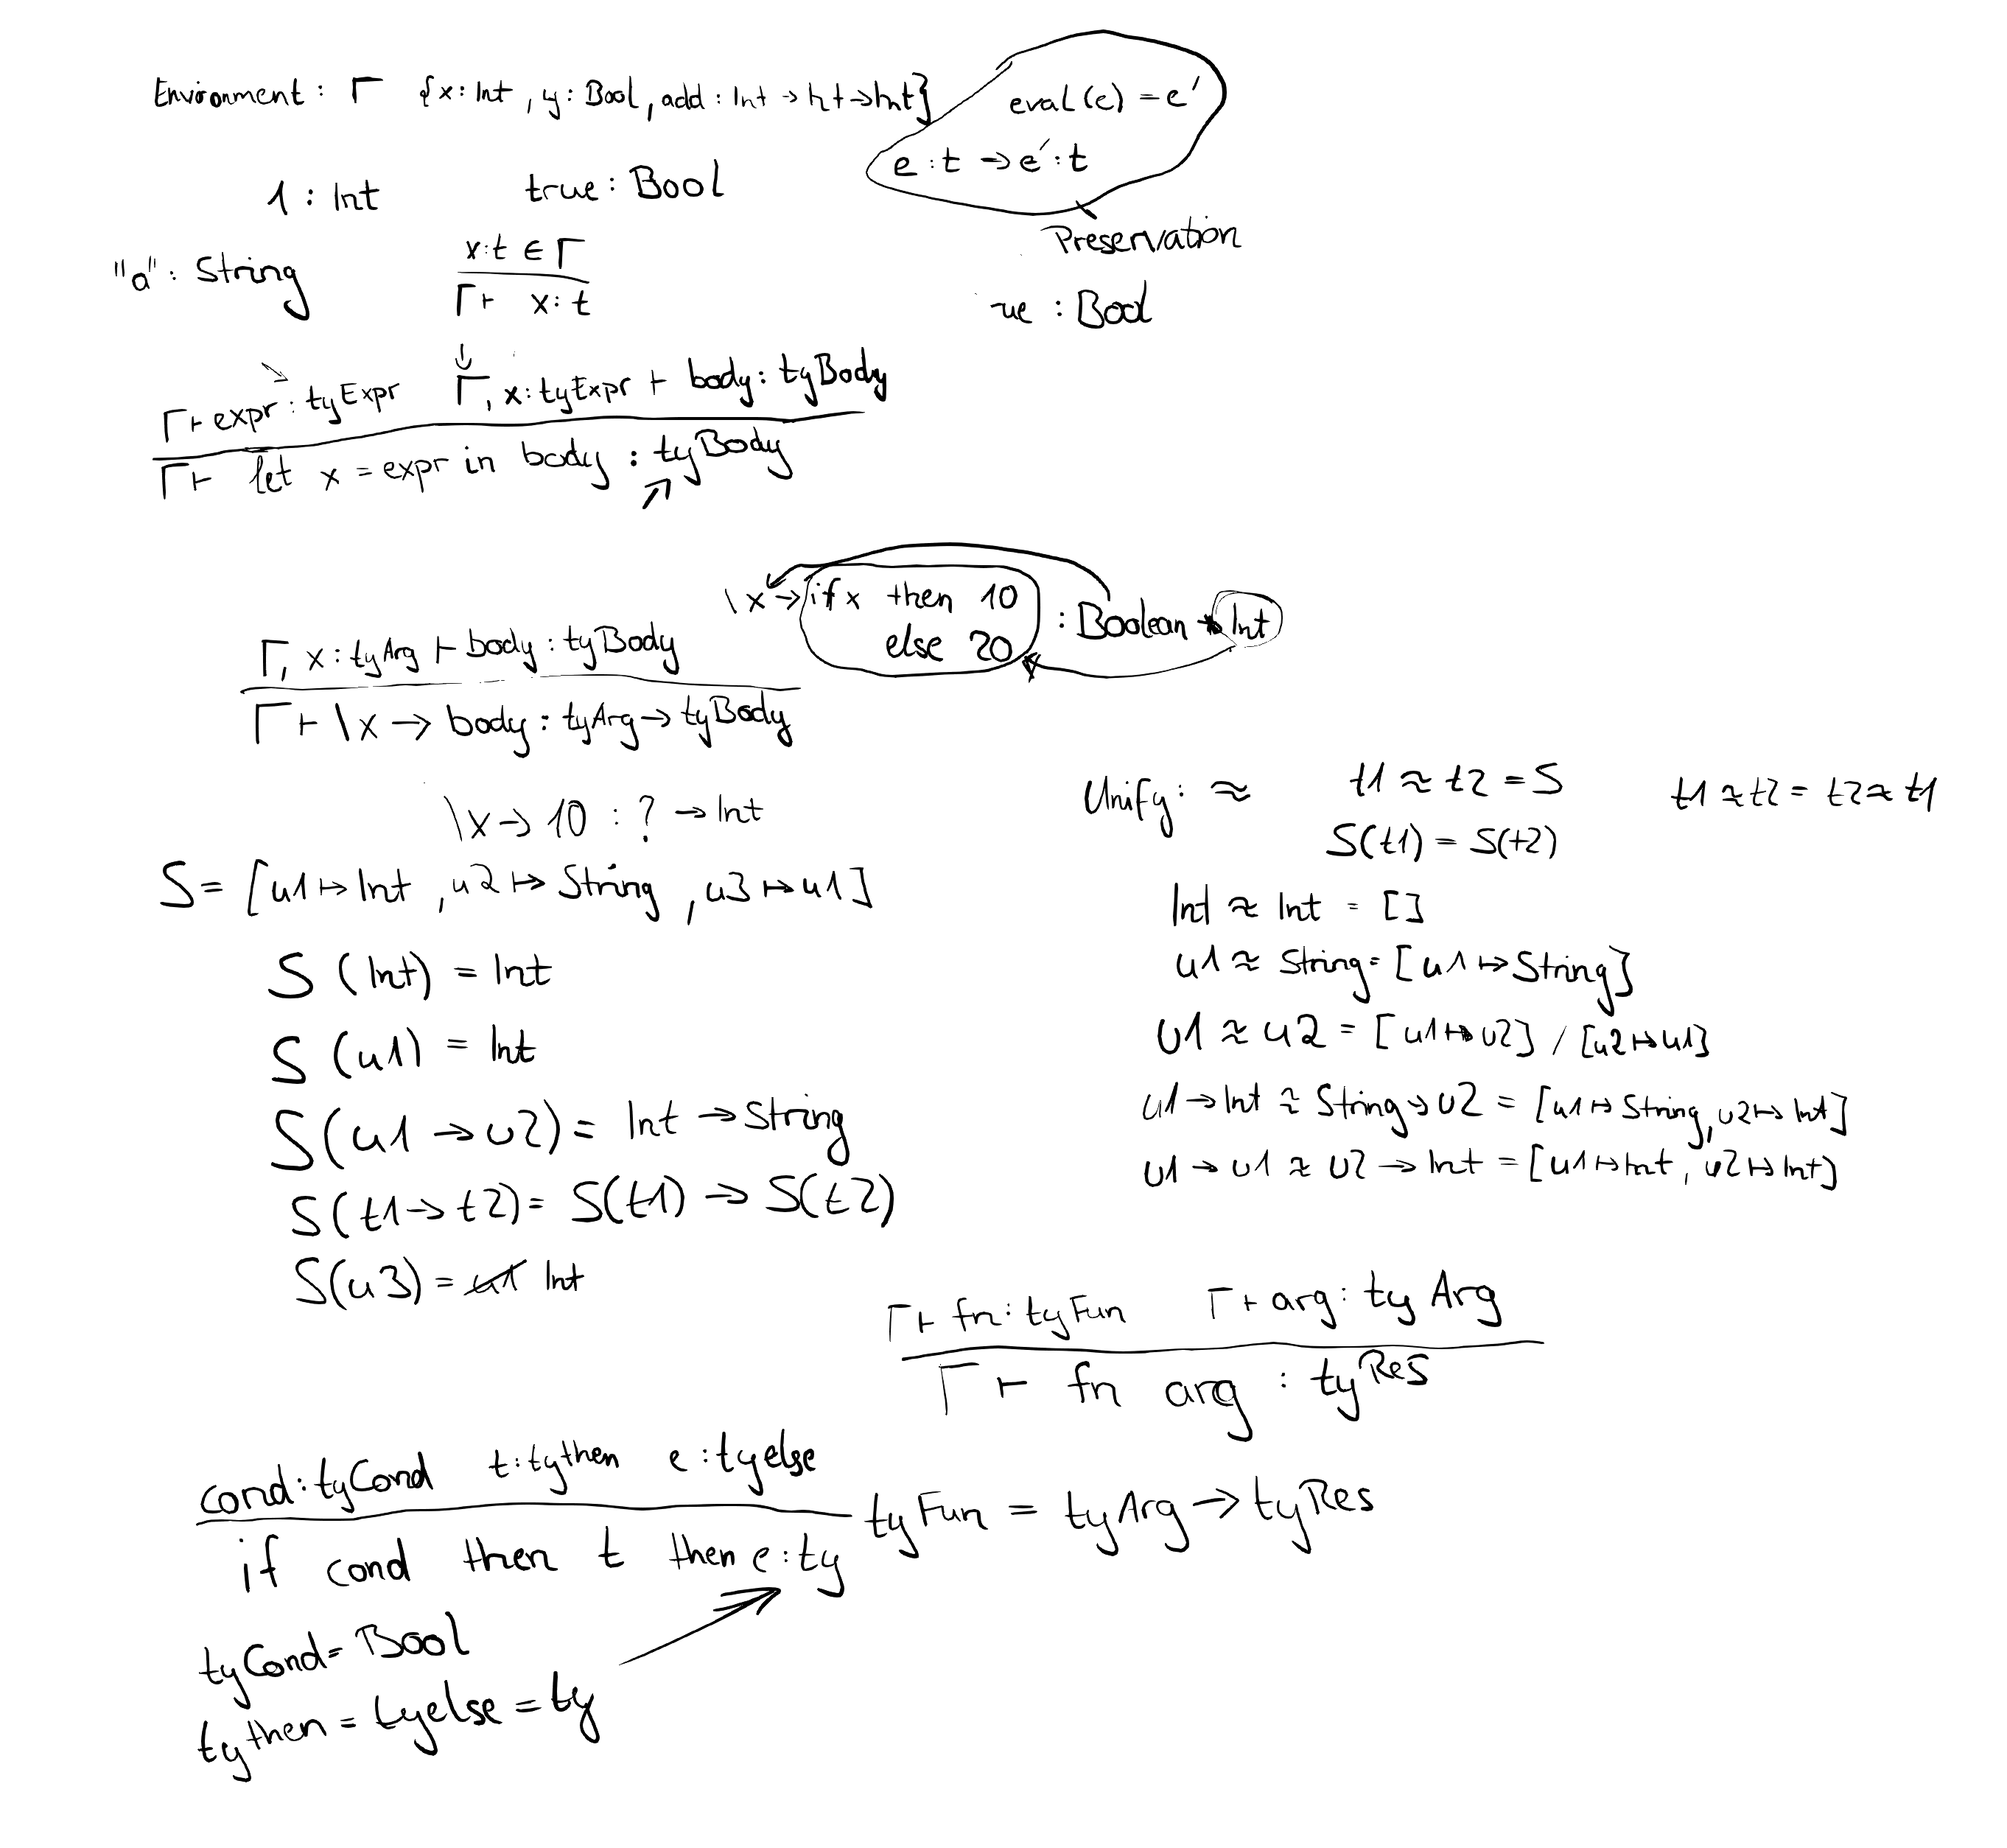 Environment : Γ {x : Int , y : Bool, add : Int → Int → Int}
eval(e) = e'
e : t → e' : t
Preservation
1 : Int true : Bool
"a" : String
x:t ∈ Γ
Γ ⊢ x : t
ue : Bool
Γ ⊢ expr : tyExpr Γ, x : tyExpr ⊢ body : tyBody
Γ ⊢ let x = expr in body : tyBody
\x → if x then 10
else 20 : Boolean → Int
Γ, x : tyArg ⊢ body : tyBody
Γ ⊢ \x → body : tyArg → tyBody
\x → 10 : ? → Int
S = [u1 ↦ Int , u2 ↦ String , u3 ↦ u1]
S (Int) = Int
S (u1) = Int
S(u1 → u2) = Int → String
S(t1 → t2) = S(t1) → S(t2)
S(u3) = u1 Int
Unify : ≈ t1 ≈ t2 = S t1 ≈ t2 = t2 ≈ t1
S(t1) = S(t2)
Int ≈ Int = []
u1 ≈ String = [u1 ↦ String]
u1 ≈ u2 = [u1 ↦ u2] / [u2 ↦ u1]
u1 → Int ≈ String → u2 = [u1 ↦ String, u2 ↦ Int]
u1 → u1 ≈ u2 → Int = [u1 ↦ Int, u2 ↦ Int]
Γ ⊢ fn : tyFun Γ ⊢ arg : tyArg
Γ ⊢ fn arg : tyRes
tyFun = tyArg → tyRes
cond : tyCond t : tythen e : tyelse
if cond then t then e : ty
tyCond = Bool
tythen = tyelse = ty